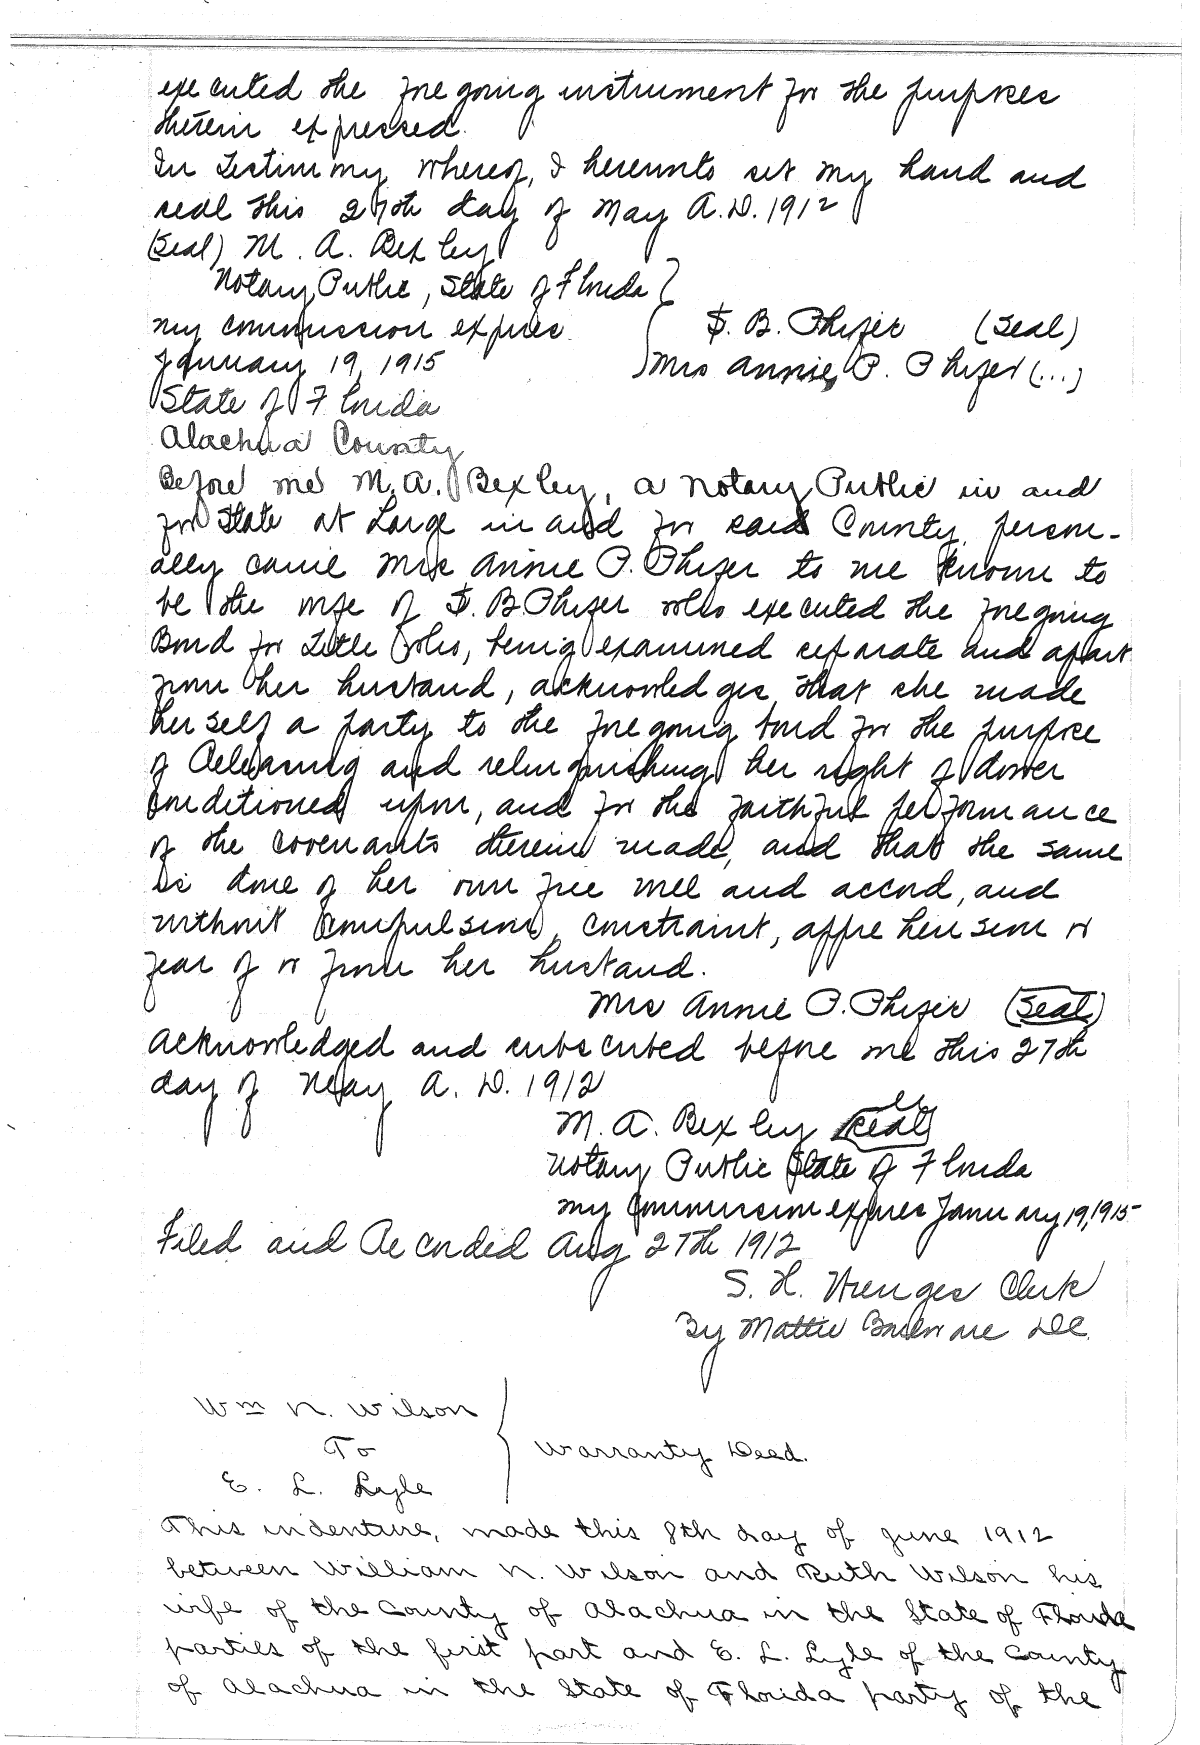 executed the foregoing instrument for the purposes
therein expressed.
In Testimony Whereof, I hereunto set my hand and
seal this 27th day of May A.D. 1912
(Seal) M. A. Bexley
Notary Public, State of Florida
my commission expires
January 19, 1915
B. Phifer (Seal)
Mrs Annie P. Phifer (...)
State of Florida
Alachua County
Before me M. A. Bexley, a Notary Public in and
for State at Large in and for said County, person-
ally came Mrs Annie P. Phifer to me known to
be the wife of B. Phifer who executed the foregoing
Bond for Title who, being examined separate and apart
from her husband, acknowledges that she made
herself a party to the foregoing bond for the purpose
of Releasing and relinquishing her right of dower
conditioned upon, and for the faithful performance
of the covenants therein made, and that the same
is done of her own free will and accord, and
without compulsion, constraint, apprehension or
fear of or from her husband.
Mrs Annie P. Phifer (Seal)
Acknowledged and subscribed before me this 27th
day of May A. D. 1912
M. A. Bexley (seal)
Notary Public State of Florida
my commission expires January 19, 1915
Filed and Recorded Aug 27th 1912
S. H. Wienges Clerk
By Mattie DC.
Wm N. Wilson
To
E. L. Lyle
Warranty Deed.
This indenture, made this 8th day of June 1912
between William N. Wilson and Ruth Wilson his
wife of the County of Alachua in the State of Florida
parties of the first part and E. L. Lyle of the County
of Alachua in the State of Florida party of the